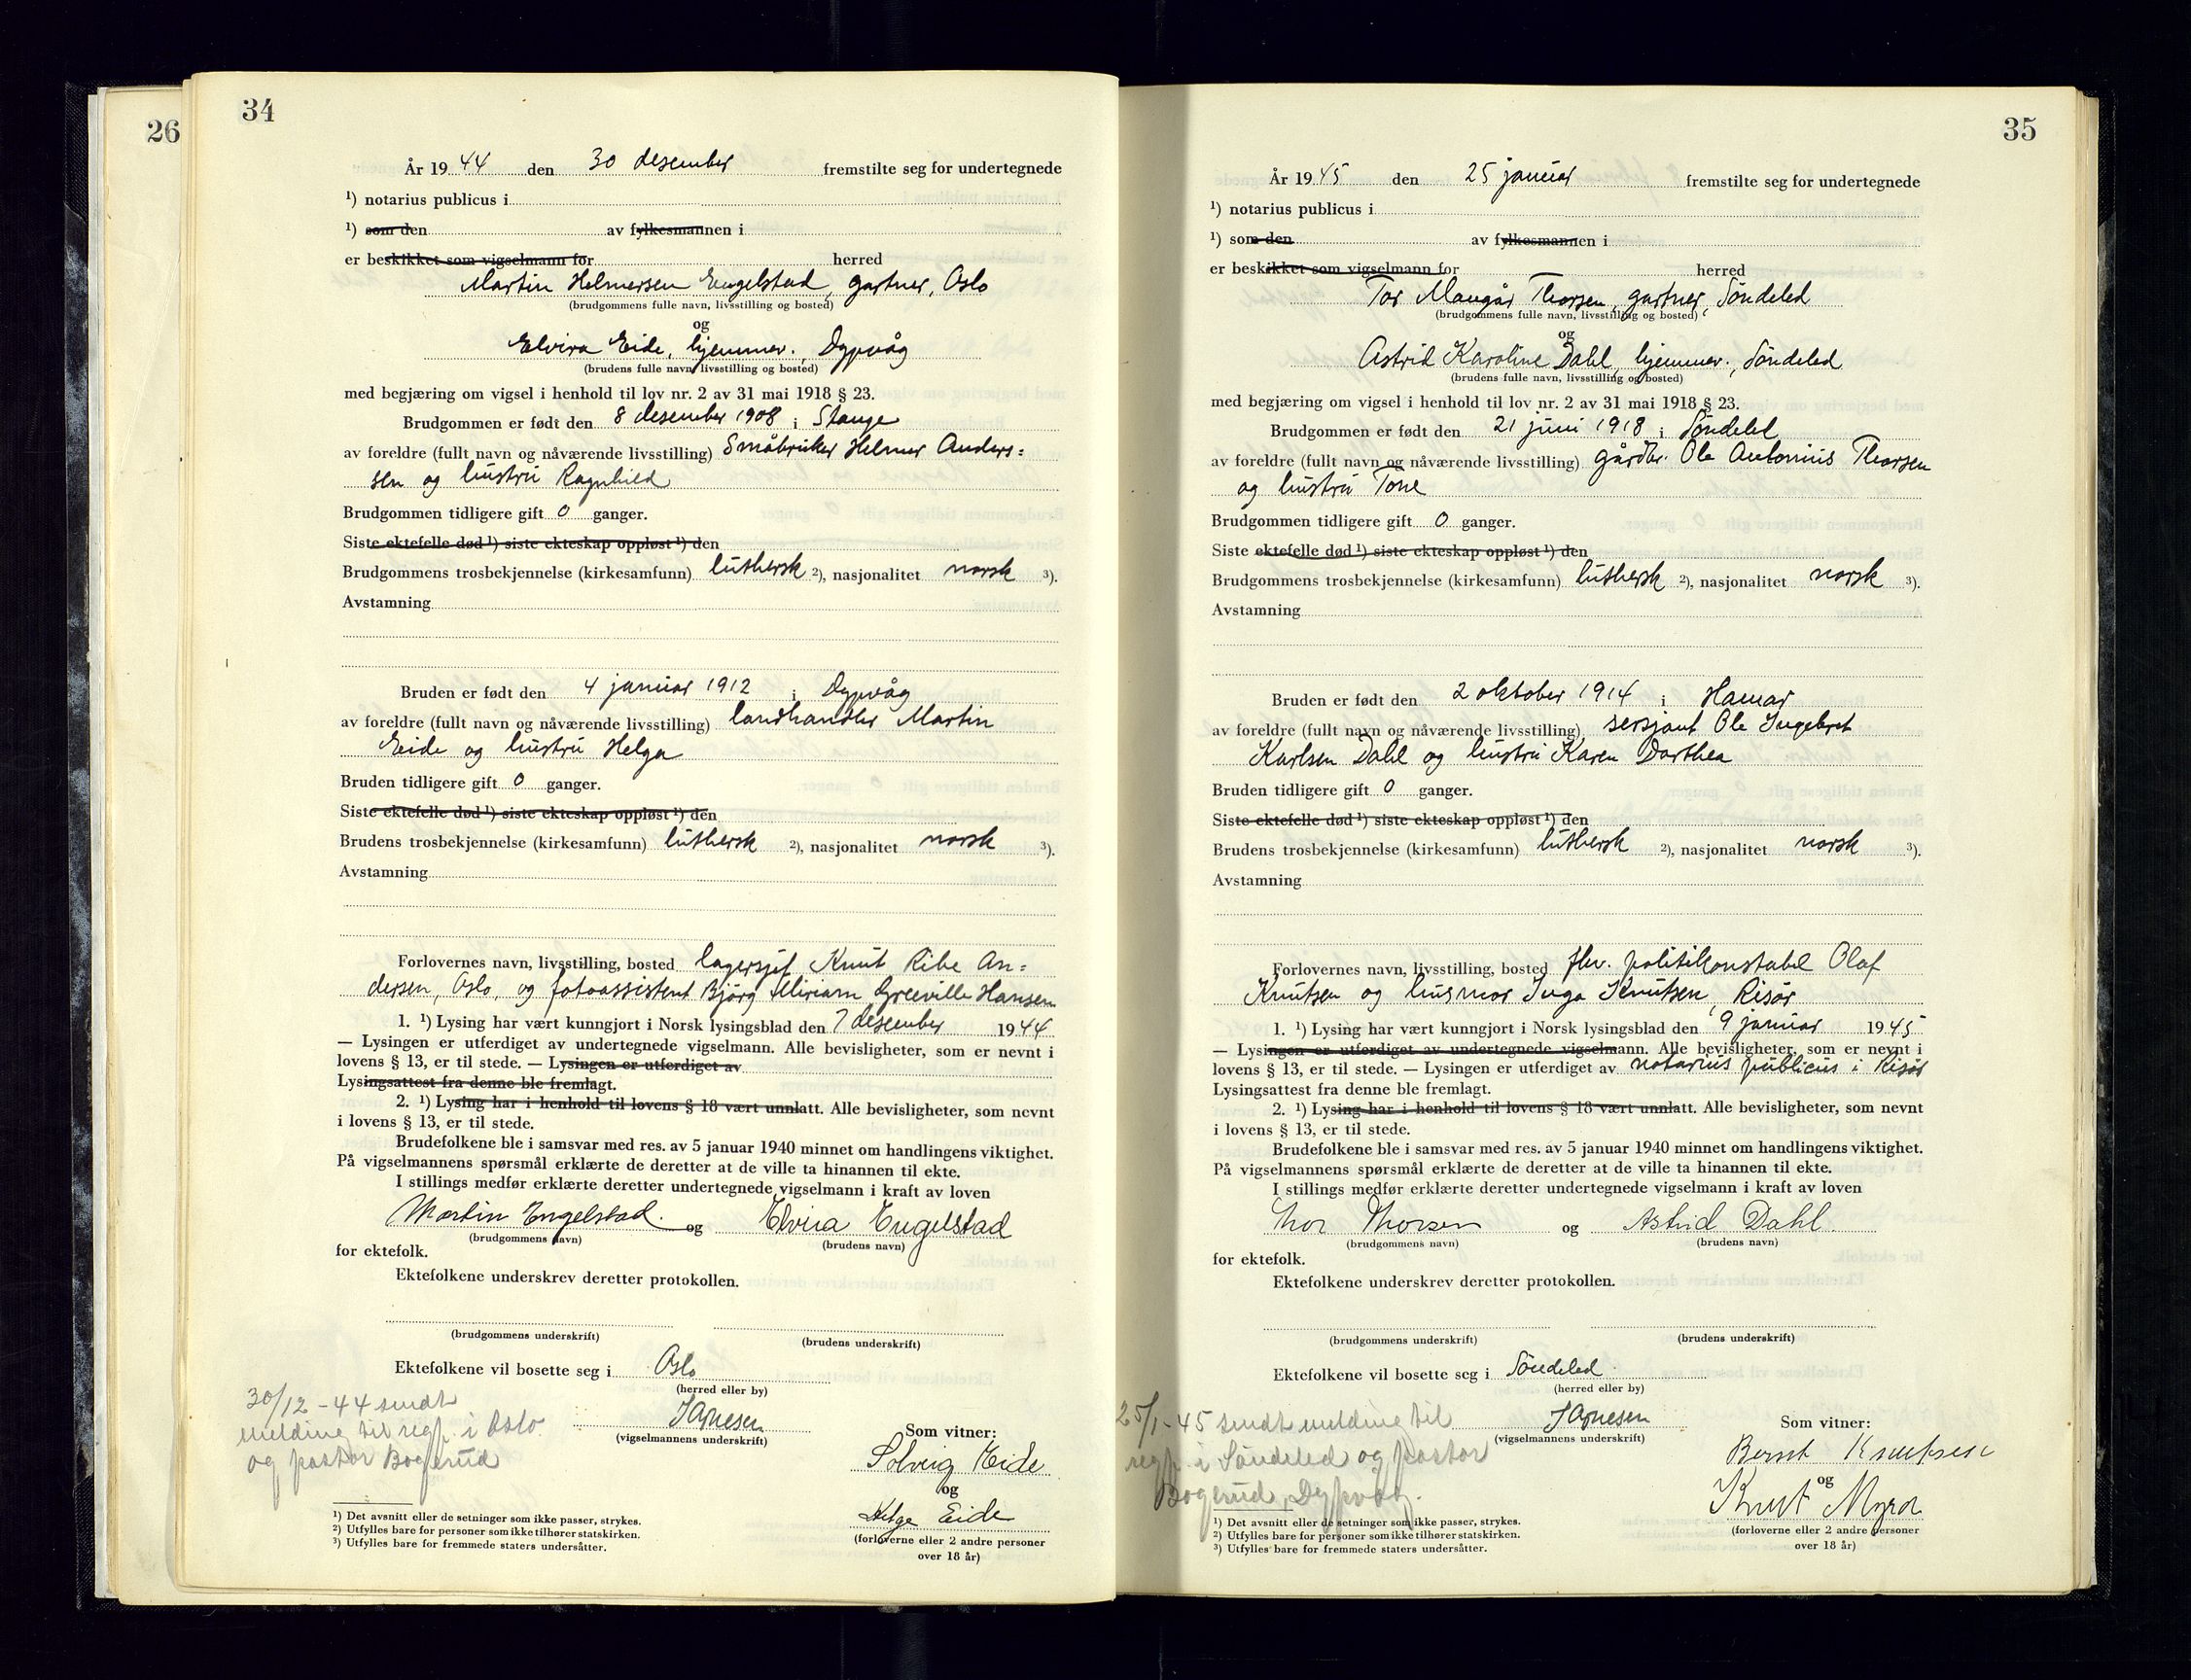 26
34
År 1944 den 30 desember fremstilte seg for undertegnede
¹) notarius publicus i
¹) som den av fylkesmannen i
er beskikket som vigselmann for herred
Martin Helmersen Engelstad, gartner, Oslo
(brudgommens fulle navn, livsstilling og bosted)
og
Elvira Eide, hjemmev., Dypvåg
(brudens fulle navn, livsstilling og bosted)
med begjæring om vigsel i henhold til lov nr. 2 av 31 mai 1918 § 23.
Brudgommen er født den 8 desember 1908 i Stange
av foreldre (fullt navn og nåværende livsstilling) Småbruker Helmer Anders=
sen og hustru Ragnhild
Brudgommen tidligere gift 0 ganger.
Siste ektefelle død ¹) siste ekteskap oppløst ¹) den
Brudgommens trosbekjennelse (kirkesamfunn) luthersk ²), nasjonalitet norsk ³).
Avstamning
Bruden er født den 4 januar 1912 i Dypvåg
av foreldre (fullt navn og nåværende livsstilling) landhandler Martin
Eide og hustru Helga
Bruden tidligere gift 0 ganger.
Siste ektefelle død ¹) siste ekteskap oppløst ¹) den
Brudens trosbekjennelse (kirkesamfunn) luthersk ²), nasjonalitet norsk ³).
Avstamning
Forlovernes navn, livsstilling, bosted lagersjef Knut Ribe An=
dersen, Oslo, og fotoassistent Bjørg Miriam Greeville Hansen
1. ¹) Lysing har vært kunngjort i Norsk lysingsblad den 7 desember 1944
— Lysingen er utferdiget av undertegnede vigselmann. Alle bevisligheter, som er nevnt i
lovens § 13, er til stede. — Lysingen er utferdiget av
Lysingsattest fra denne ble fremlagt.
2. ¹) Lysing har i henhold til lovens § 18 vært unnlatt. Alle bevisligheter, som nevnt
i lovens § 13, er til stede.
Brudefolkene ble i samsvar med res. av 5 januar 1940 minnet om handlingens viktighet.
På vigselmannens spørsmål erklærte de deretter at de ville ta hinannen til ekte.
I stillings medfør erklærte deretter undertegnede vigselmann i kraft av loven
Martin Engelstad. og Elvira Engelstad
(brudgommens navn) (brudens navn)
for ektefolk.
Ektefolkene underskrev deretter protokollen.
(brudgommens underskrift) (brudens underskrift)
Ektefolkene vil bosette seg i Oslo
(herred eller by)
30/12-44 sendt
melding til regf. i Oslo
og pastor Bogerud
JArnesen
(vigselmannens underskrift)
Som vitner:
Solveig Eide
og
Helge Eide
(forloverne eller 2 andre personer
over 18 år)
¹) Det avsnitt eller de setninger som ikke passer, strykes.
²) Utfylles bare for personer som ikke tilhører statskirken.
³) Utfylles bare for fremmede staters undersåtter.
35
År 1945 den 25 januar fremstilte seg for undertegnede
¹) notarius publicus i
¹) som den av fylkesmannen i
er beskikket som vigselmann for herred
Tor Maugår Thorsen, gartner, Søndeled
(brudgommens fulle navn, livsstilling og bosted)
og
Astrid Karoline Dahl, hjemmev., Søndeled
(brudens fulle navn, livsstilling og bosted)
med begjæring om vigsel i henhold til lov nr. 2 av 31 mai 1918 § 23.
Brudgommen er født den 21 juni 1918 i Søndeled
av foreldre (fullt navn og nåværende livsstilling) gårdbr. Ole Antonius Thorsen
og hustru Tone
Brudgommen tidligere gift 0 ganger.
Siste ektefelle død ¹) siste ekteskap oppløst ¹) den
Brudgommens trosbekjennelse (kirkesamfunn) luthersk ²), nasjonalitet norsk ³).
Avstamning
Bruden er født den 2 oktober 1914 i Hamar
av foreldre (fullt navn og nåværende livsstilling) sersjant Ole Ingebret
Karlsen Dahl og hustru Karen Dorthea
Bruden tidligere gift 0 ganger.
Siste ektefelle død ¹) siste ekteskap oppløst ¹) den
Brudens trosbekjennelse (kirkesamfunn) luthersk ²), nasjonalitet norsk ³).
Avstamning
Forlovernes navn, livsstilling, bosted fhv. politikonstabel Olaf
Knutsen og husmor Inga Knutsen, Risør
1. ¹) Lysing har vært kunngjort i Norsk lysingsblad den 9 januar 1945
— Lysingen er utferdiget av undertegnede vigselmann. Alle bevisligheter, som er nevnt i
lovens § 13, er til stede. — Lysingen er utferdiget av notarius publicus i Risør
Lysingsattest fra denne ble fremlagt.
2. ¹) Lysing har i henhold til lovens § 18 vært unnlatt. Alle bevisligheter, som nevnt
i lovens § 13, er til stede.
Brudefolkene ble i samsvar med res. av 5 januar 1940 minnet om handlingens viktighet.
På vigselmannens spørsmål erklærte de deretter at de ville ta hinannen til ekte.
I stillings medfør erklærte deretter undertegnede vigselmann i kraft av loven
Thor Thorsen og Astrid Dahl.
(brudgommens navn) (brudens navn)
for ektefolk.
Ektefolkene underskrev deretter protokollen.
(brudgommens underskrift) (brudens underskrift)
Ektefolkene vil bosette seg i Søndeled
(herred eller by)
25/1-45 sendt melding til
regf. i Søndeled og pastor
Bogerud, Dypvåg.
JArnesen
(vigselmannens underskrift)
Som vitner:
Bernt Knutsen
og
Knut Myra
(forloverne eller 2 andre personer
over 18 år)
¹) Det avsnitt eller de setninger som ikke passer, strykes.
²) Utfylles bare for personer som ikke tilhører statskirken.
³) Utfylles bare for fremmede staters undersåtter.